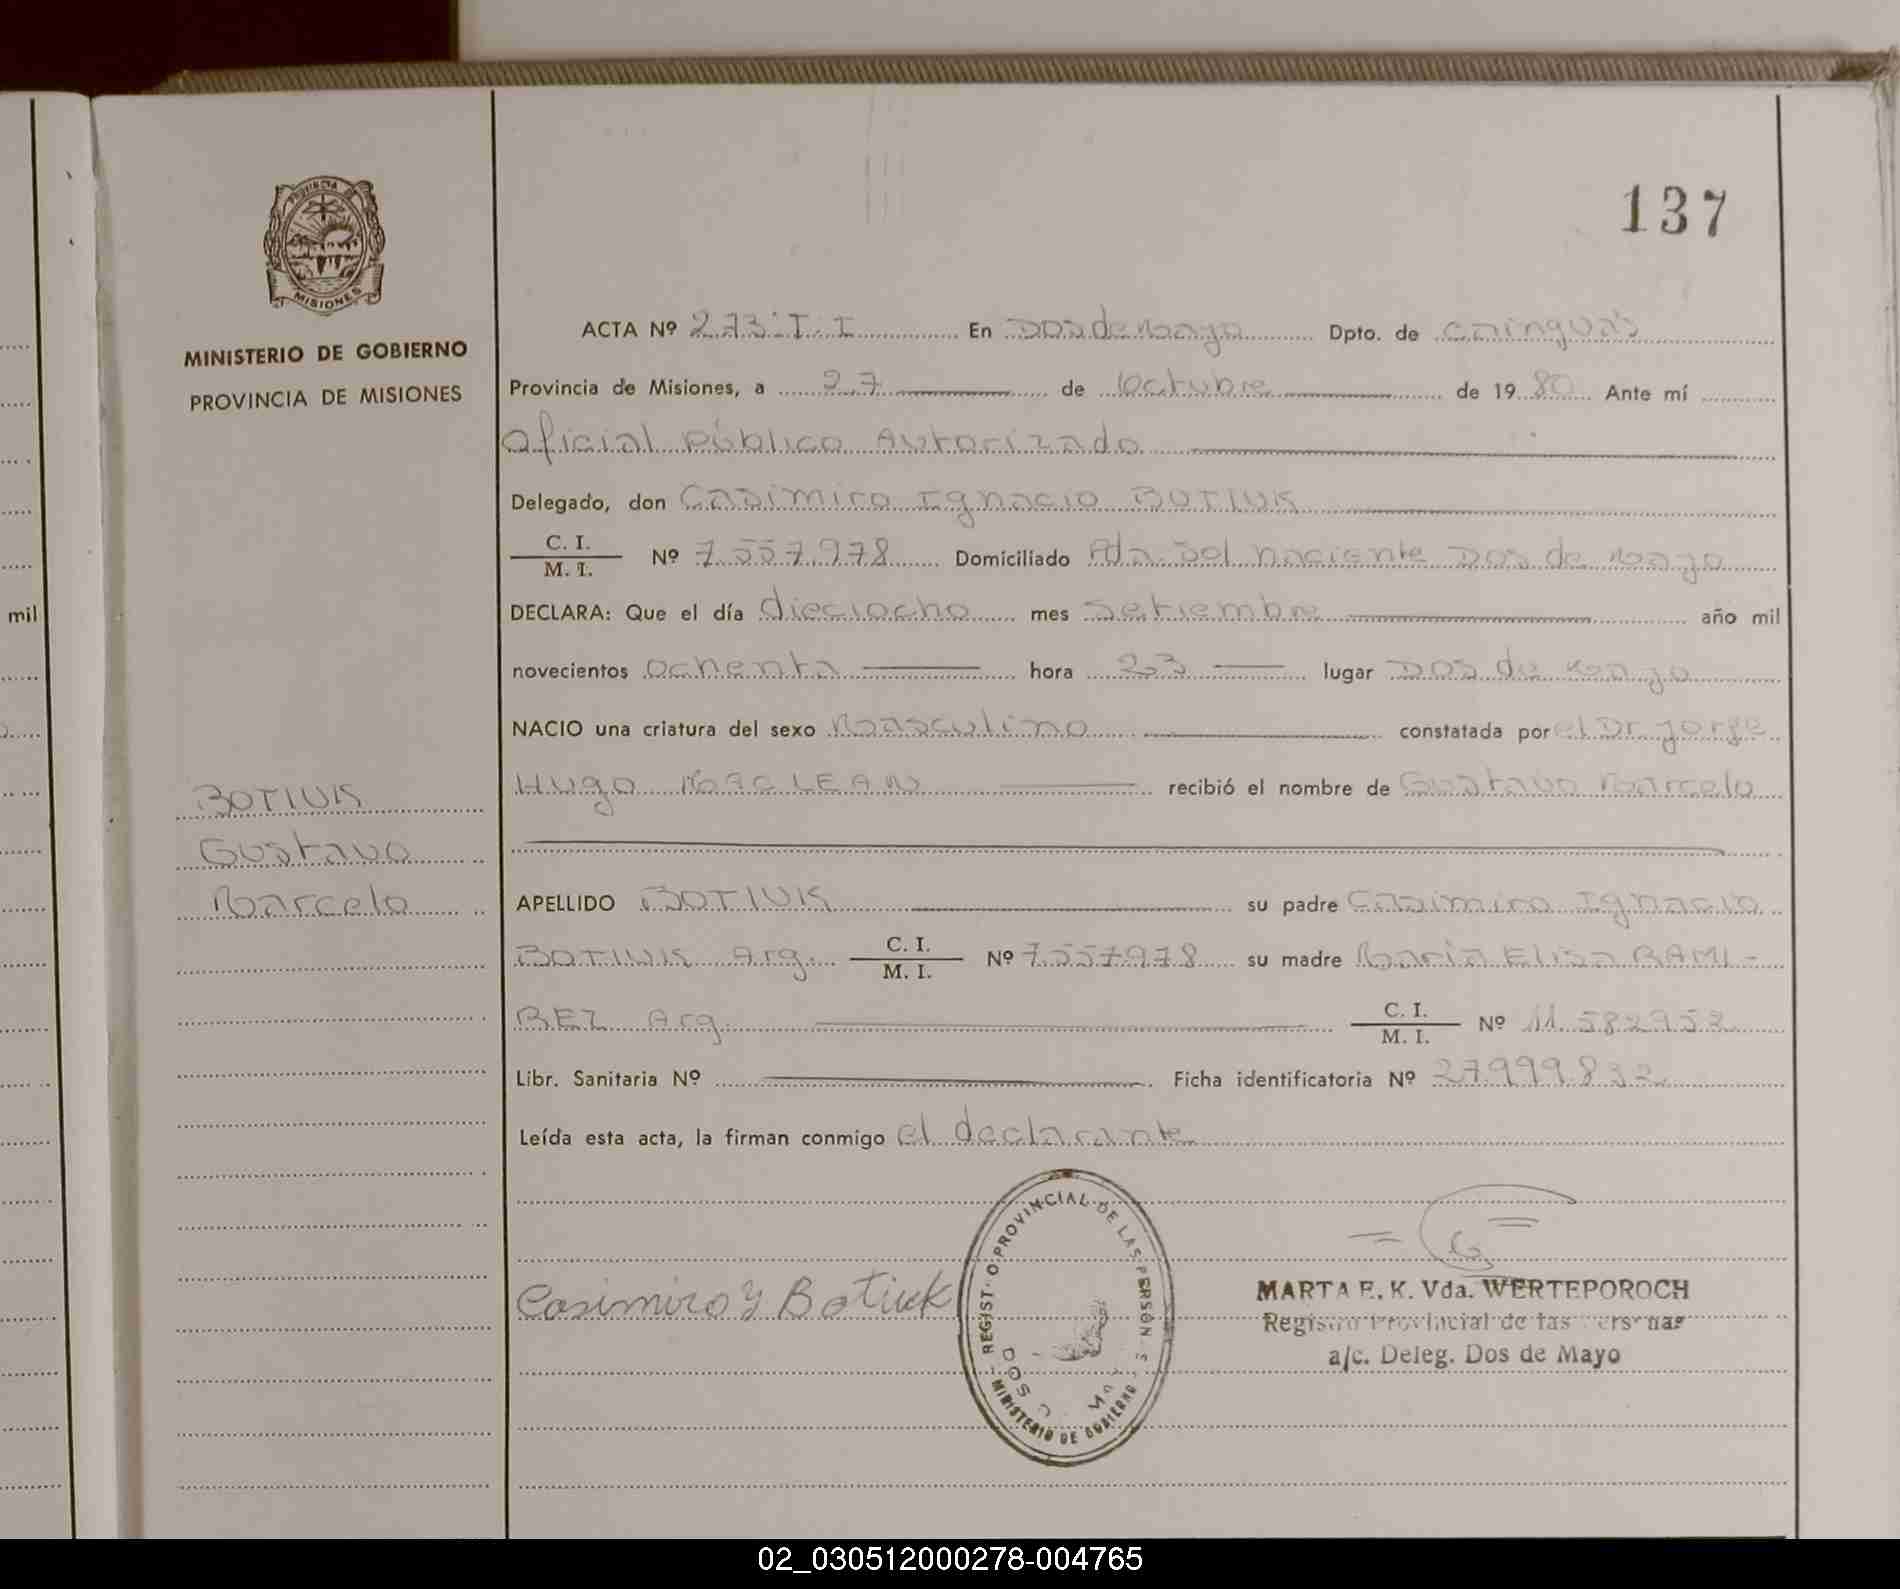 137
PROVINCIA DE
MISIONES
MINISTERIO DE GOBIERNO
PROVINCIA DE MISIONES
ACTA Nº 273-T.I En Dos de Mayo Dpto. de Cainguas
Provincia de Misiones, a 27 de Octubre de 1980 Ante mí
Oficial Público Autorizado
Delegado, don Casimiro Ignacio BOTIUK
C. I.
M. I. Nº 7.557.978 Domiciliado Pda. Sol naciente Dos de Mayo
mil
DECLARA: Que el día dieciocho mes Setiembre año mil
novecientos ochenta hora 23 lugar Dos de Mayo
NACIO una criatura del sexo Masculino constatada por el Dr. Jorge
Hugo MAC LEAN recibió el nombre de Gustavo Marcelo
BOTIUK
Gustavo
Marcelo
APELLIDO BOTIUK su padre Casimiro Ignacio
BOTIUK Arg. C. I.
M. I. Nº 7.557978 su madre María Elisa RAMI-
REZ Arg. C. I.
M. I. Nº 11.582952
Libr. Sanitaria Nº Ficha identificatoria Nº 27999832
Leída esta acta, la firman conmigo el declarante
Casimiro Y Botiuk
REGISTRO PROVINCIAL DE LAS PERSONAS
MINISTERIO DE GOBIERNO
MARTA E. K. Vda. WERTEPOROCH
Registro Provincial de las Personas
a/c. Deleg. Dos de Mayo
02_030512000278-004765